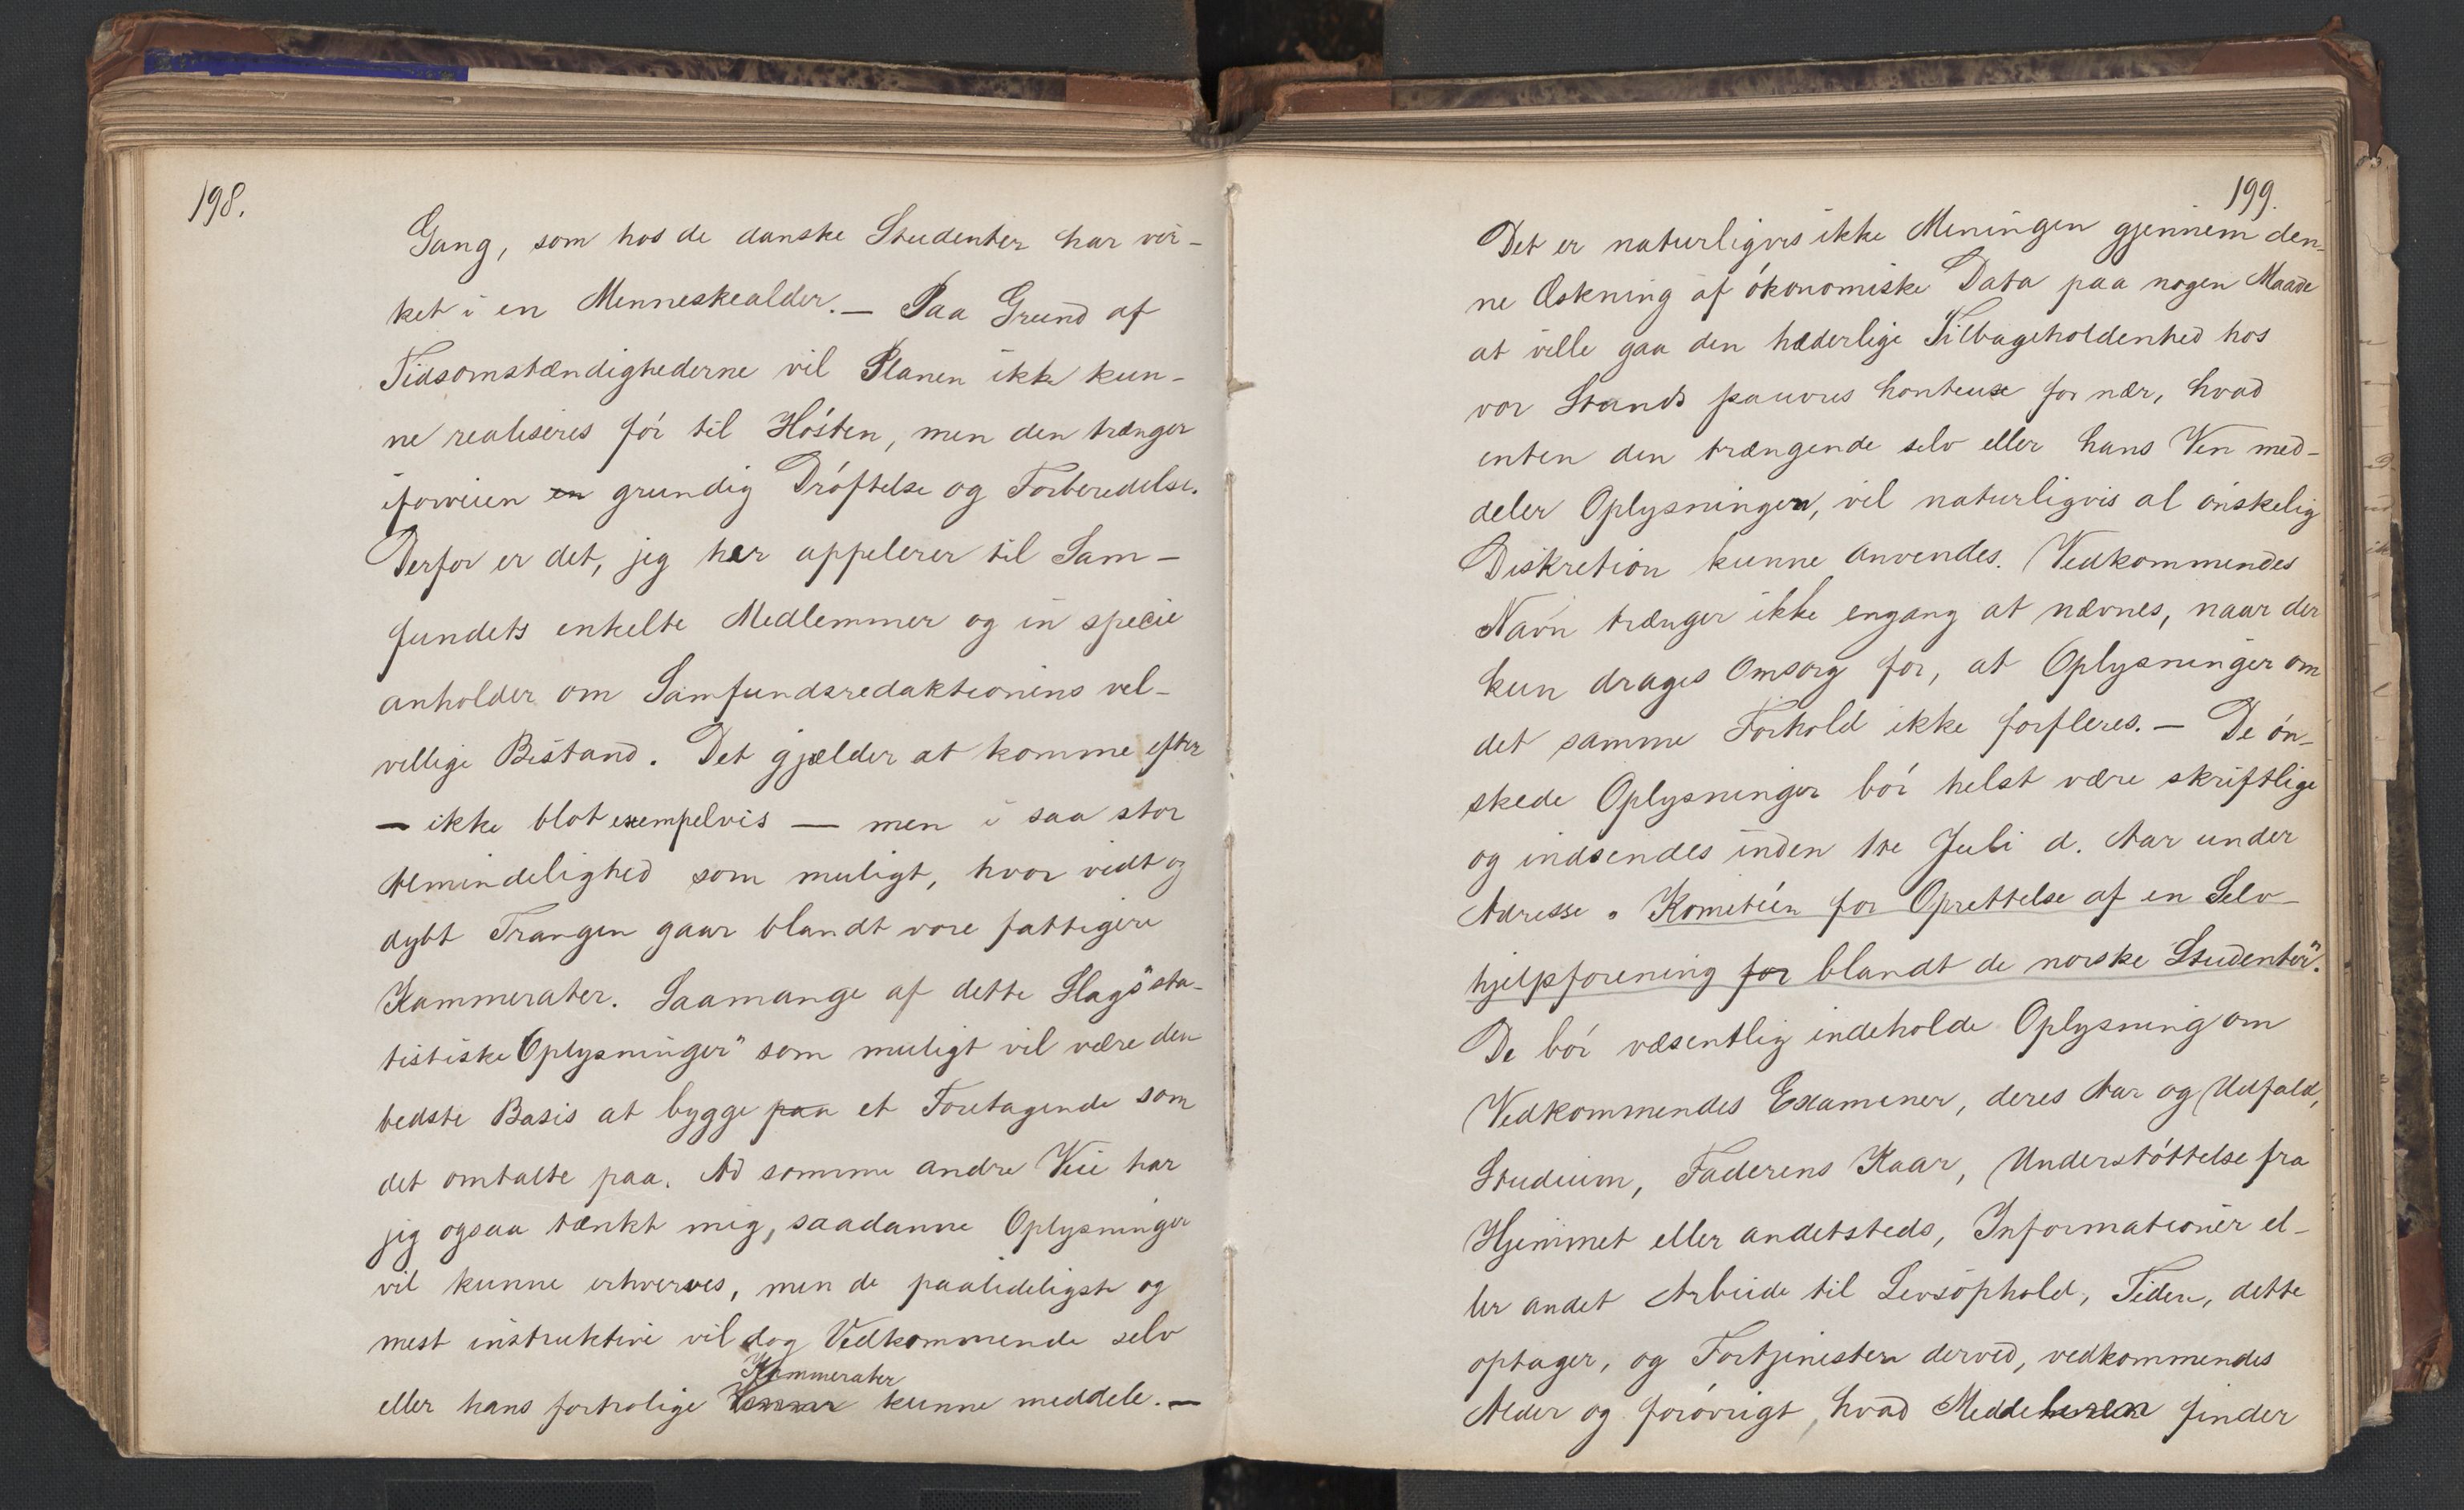 198.
Gang, som hos de danske Studenter har vir-
ket i en Menneskealder. — Paa Grund af
Tidsomstændighederne vil Planen ikke kun-
ne realiseres før til Høsten, men den trænger
iforveien en grundig Drøftelse og Forberedelse.
Derfor er det, jeg her appelerer til Sam-
fundets enkelte Medlemmer og in specie
anholder om Samfundsredaktionens vel-
villige Bistand. Det gjælder at komme efter
— ikke blot exempelvis — men i saa stor
Almindelighed som muligt, hvor vidt og
dybt Trangen gaar blandt vore fattigere
Kammerater. Saamange af dette Slags "sta-
tistiske Oplysninger" som muligt vil være den
bedste Basis at bygge paa et Foretagende som
det omtalte paa. Ad somme andre Veie har
jeg ogsaa tænkt mig, saadanne Oplysninger
vil kunne erhverves, men de paalideligste og
mest instruktive vil dog Vedkommende selv
Kammerater
eller hans fortrolige Venner kunne meddele. —
199.
Det er naturligvis ikke Meningen gjennem den-
ne Æskning af økonomiske Data paa nogen Maade
at ville gaa den hæderlige Tilbageholdenhed hos
vor Stands pauvres honteuse for nær, hvad
enten den trængende selv eller hans Ven med-
deler Oplysningen, vil naturligvis al ønskelig
Diskretion kunne anvendes. Vedkommendes
Navn trænger ikke engang at nævnes, naar der
kun drages Omsorg for, at Oplysninger om
det samme Forhold ikke forfleres. — De øn-
skede Oplysninger bør helst være skriftlige
og indsendes inden 1ste Juli d. Aar under
Adresse „Kometéen for Oprettelse af en Selv-
hjelpforening for blandt de norske Studenter".
De bør væsentlig indeholde Oplysning om
Vedkommendes Examener, deres Aar og Udfald,
Studium, Faderens Kaar, Understøttelse fra
Hjemmet eller andetsteds, Informationer el-
ler andet Arbeide til Levsophold, Tiden, dette
optager, og Fortjenesten derved, vedkommendes
Alder og forøvrigt, hvad Meddeleren finder